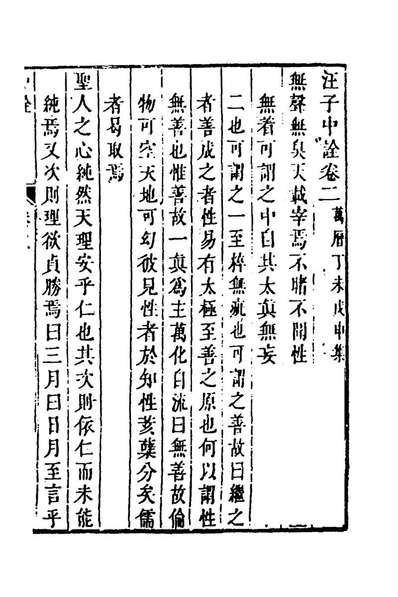 汪子中詮卷二 萬曆丁未戊申集
無聲無臭天載宰焉不睹不聞性
無着可謂之中自其太真無妄
二也可謂之一至粹無疵也可謂之善故曰繼之
者善成之者性易有太極至善之原也何以謂性
無善也惟善故一真爲主萬化自流曰無善故倫
物可空天地可幻彼見性者於知性亥蘖分矣儒
者曷取焉
聖人之心純然天理安乎仁也其次則依仁而未能
純焉又次則理欲貞勝焉曰三月曰日月至言乎